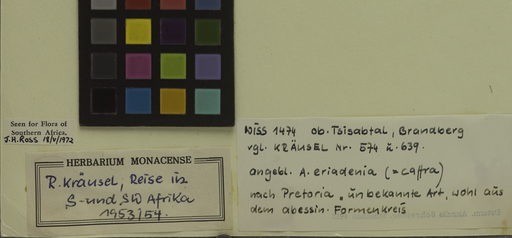 Seen for Flora of
Southern Africa.
J.H. Ross 18/V/1972
HERBARIUM MONACENSE
R. Kräusel, Reise in
S- und SW Afrika
1953/54.
WISS 1474 ob. Tsisabtal, Brandberg
vgl. KRÄUSEL Nr. 574 u. 639.
angebl. A. eriadenia (= caffra)
nach Pretoria "unbekannte Art, wohl aus
dem abessin. Formenkreis